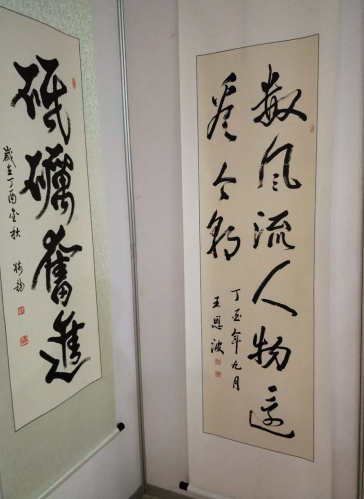 砥礪奮進
歲在丁酉金秋
数风流人物还
看今朝
丁酉年九月
王恩波